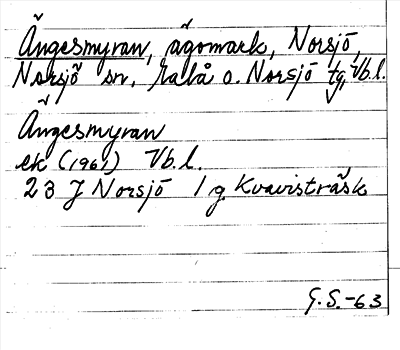 Ängesmyran, ägomark, Norsjö,
Norsjö sn, Malå o. Norsjö tg, Vb.l.
Ängesmyran
ek (1961) Vb.l.
23 J Norsjö 1 g Kvavisträsk
G.S.-63